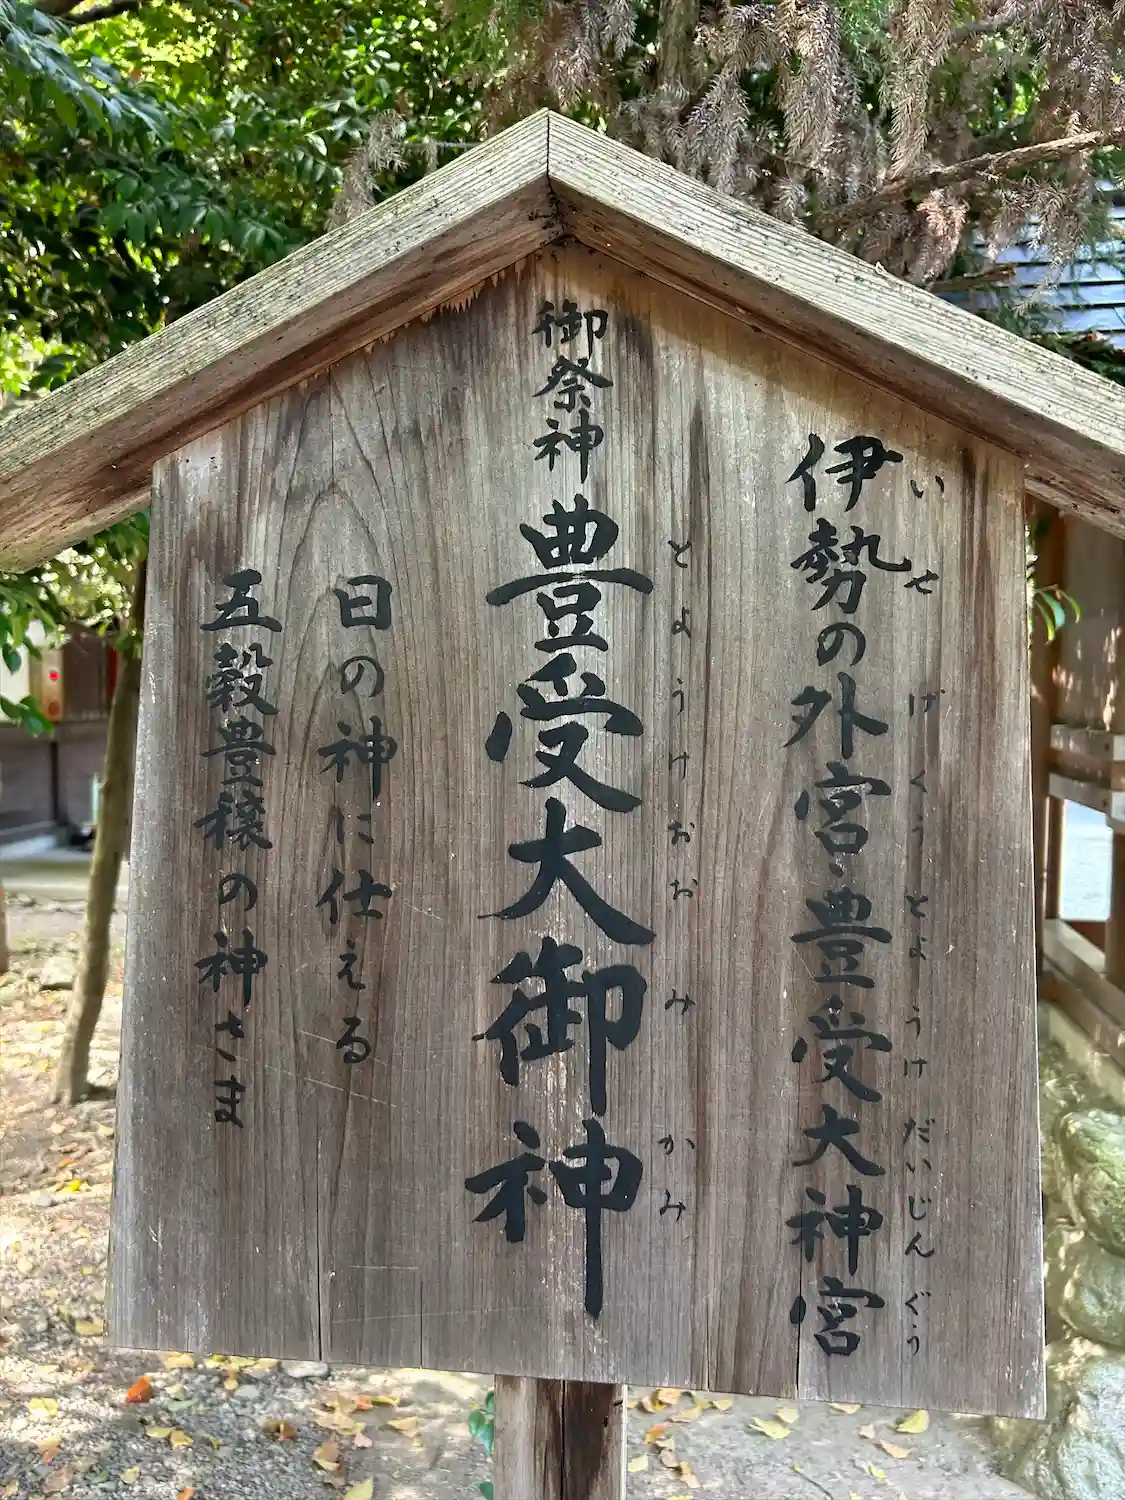 伊勢の外宮・豊受大神宮
いせ げくう とようけだいじんぐう
御祭神 豊受大御神
とようけおおみかみ
日の神に仕える
五穀豊穣の神さま